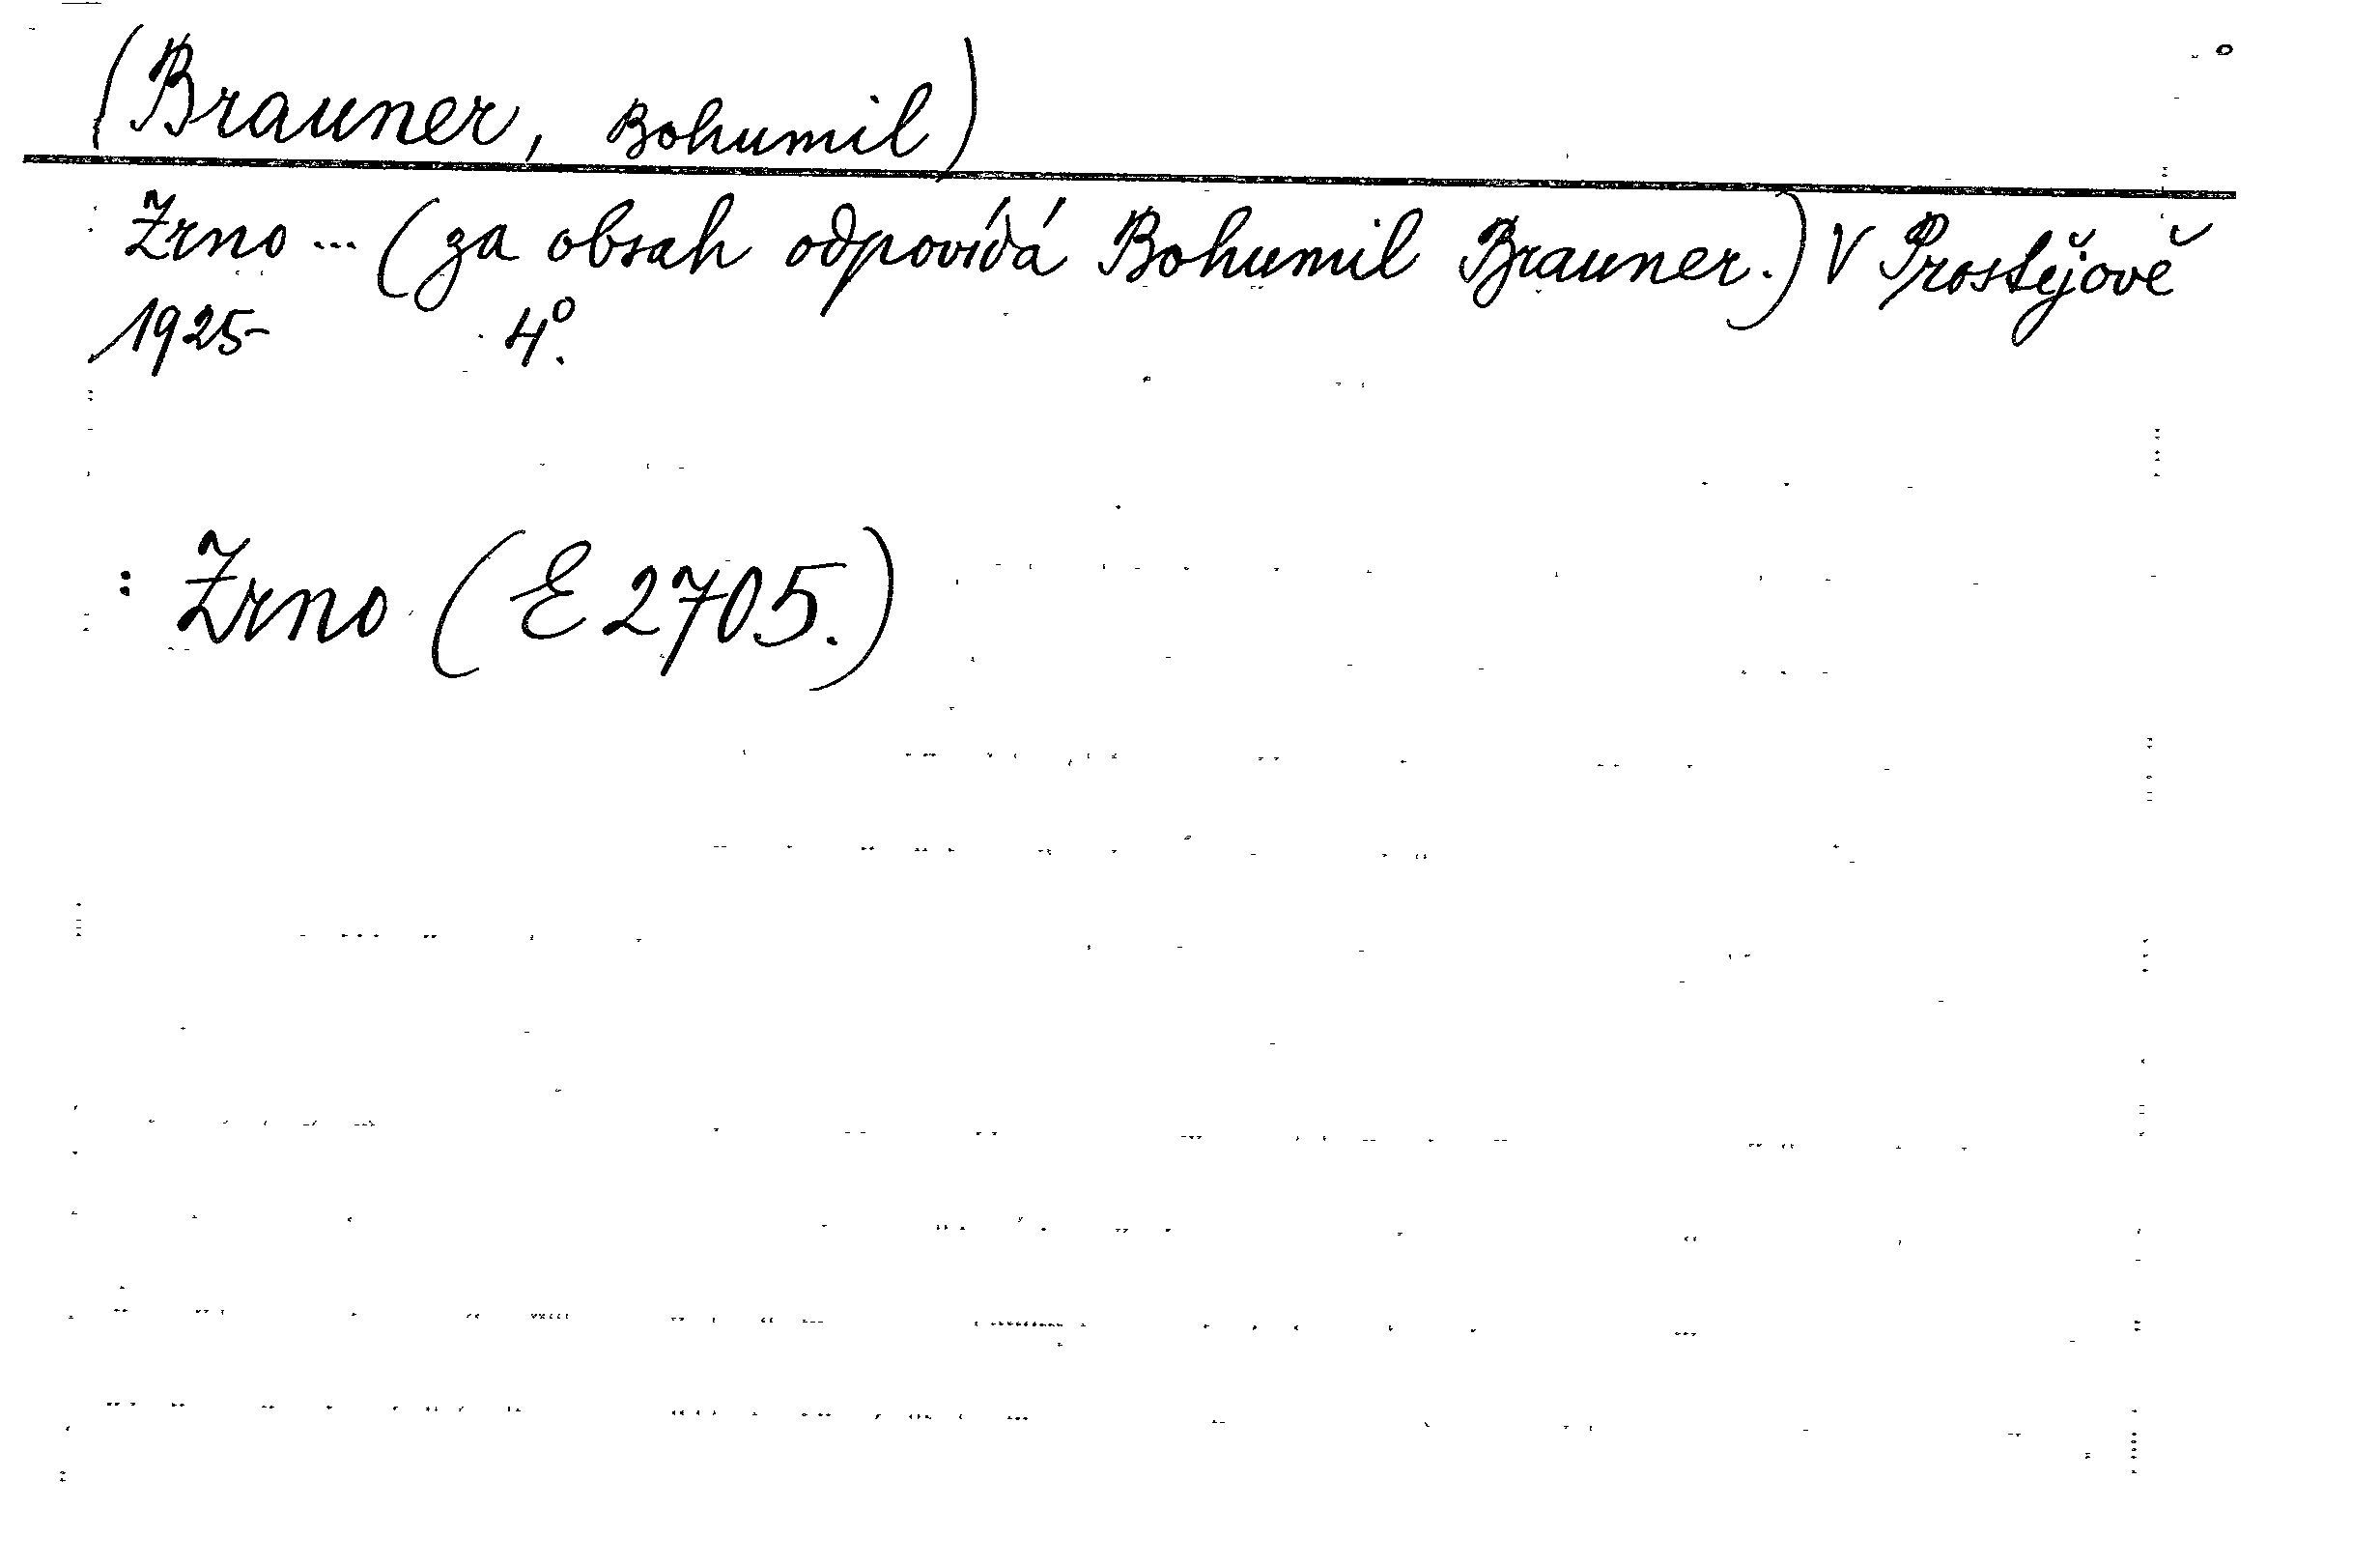 (Brauner, Bohumil)
Zrno... (za obsah odpovídá Bohumil Brauner.) V Prostějově
1925- 4°.
: Zrno (E 2705.)